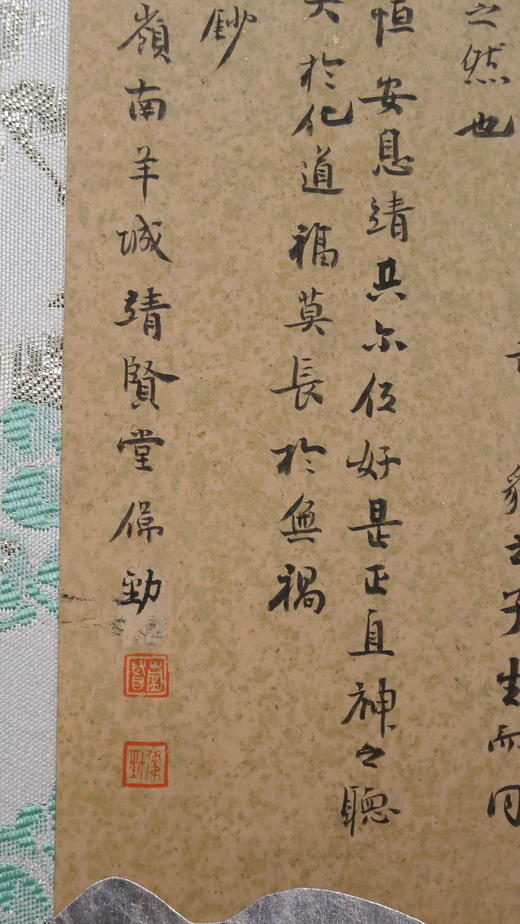 貉之子生而同
之然也
恒安息靖共尔位好是正直神之聽
大於化道福莫長於無禍
鈔
嶺南羊城靖賢堂偉勁